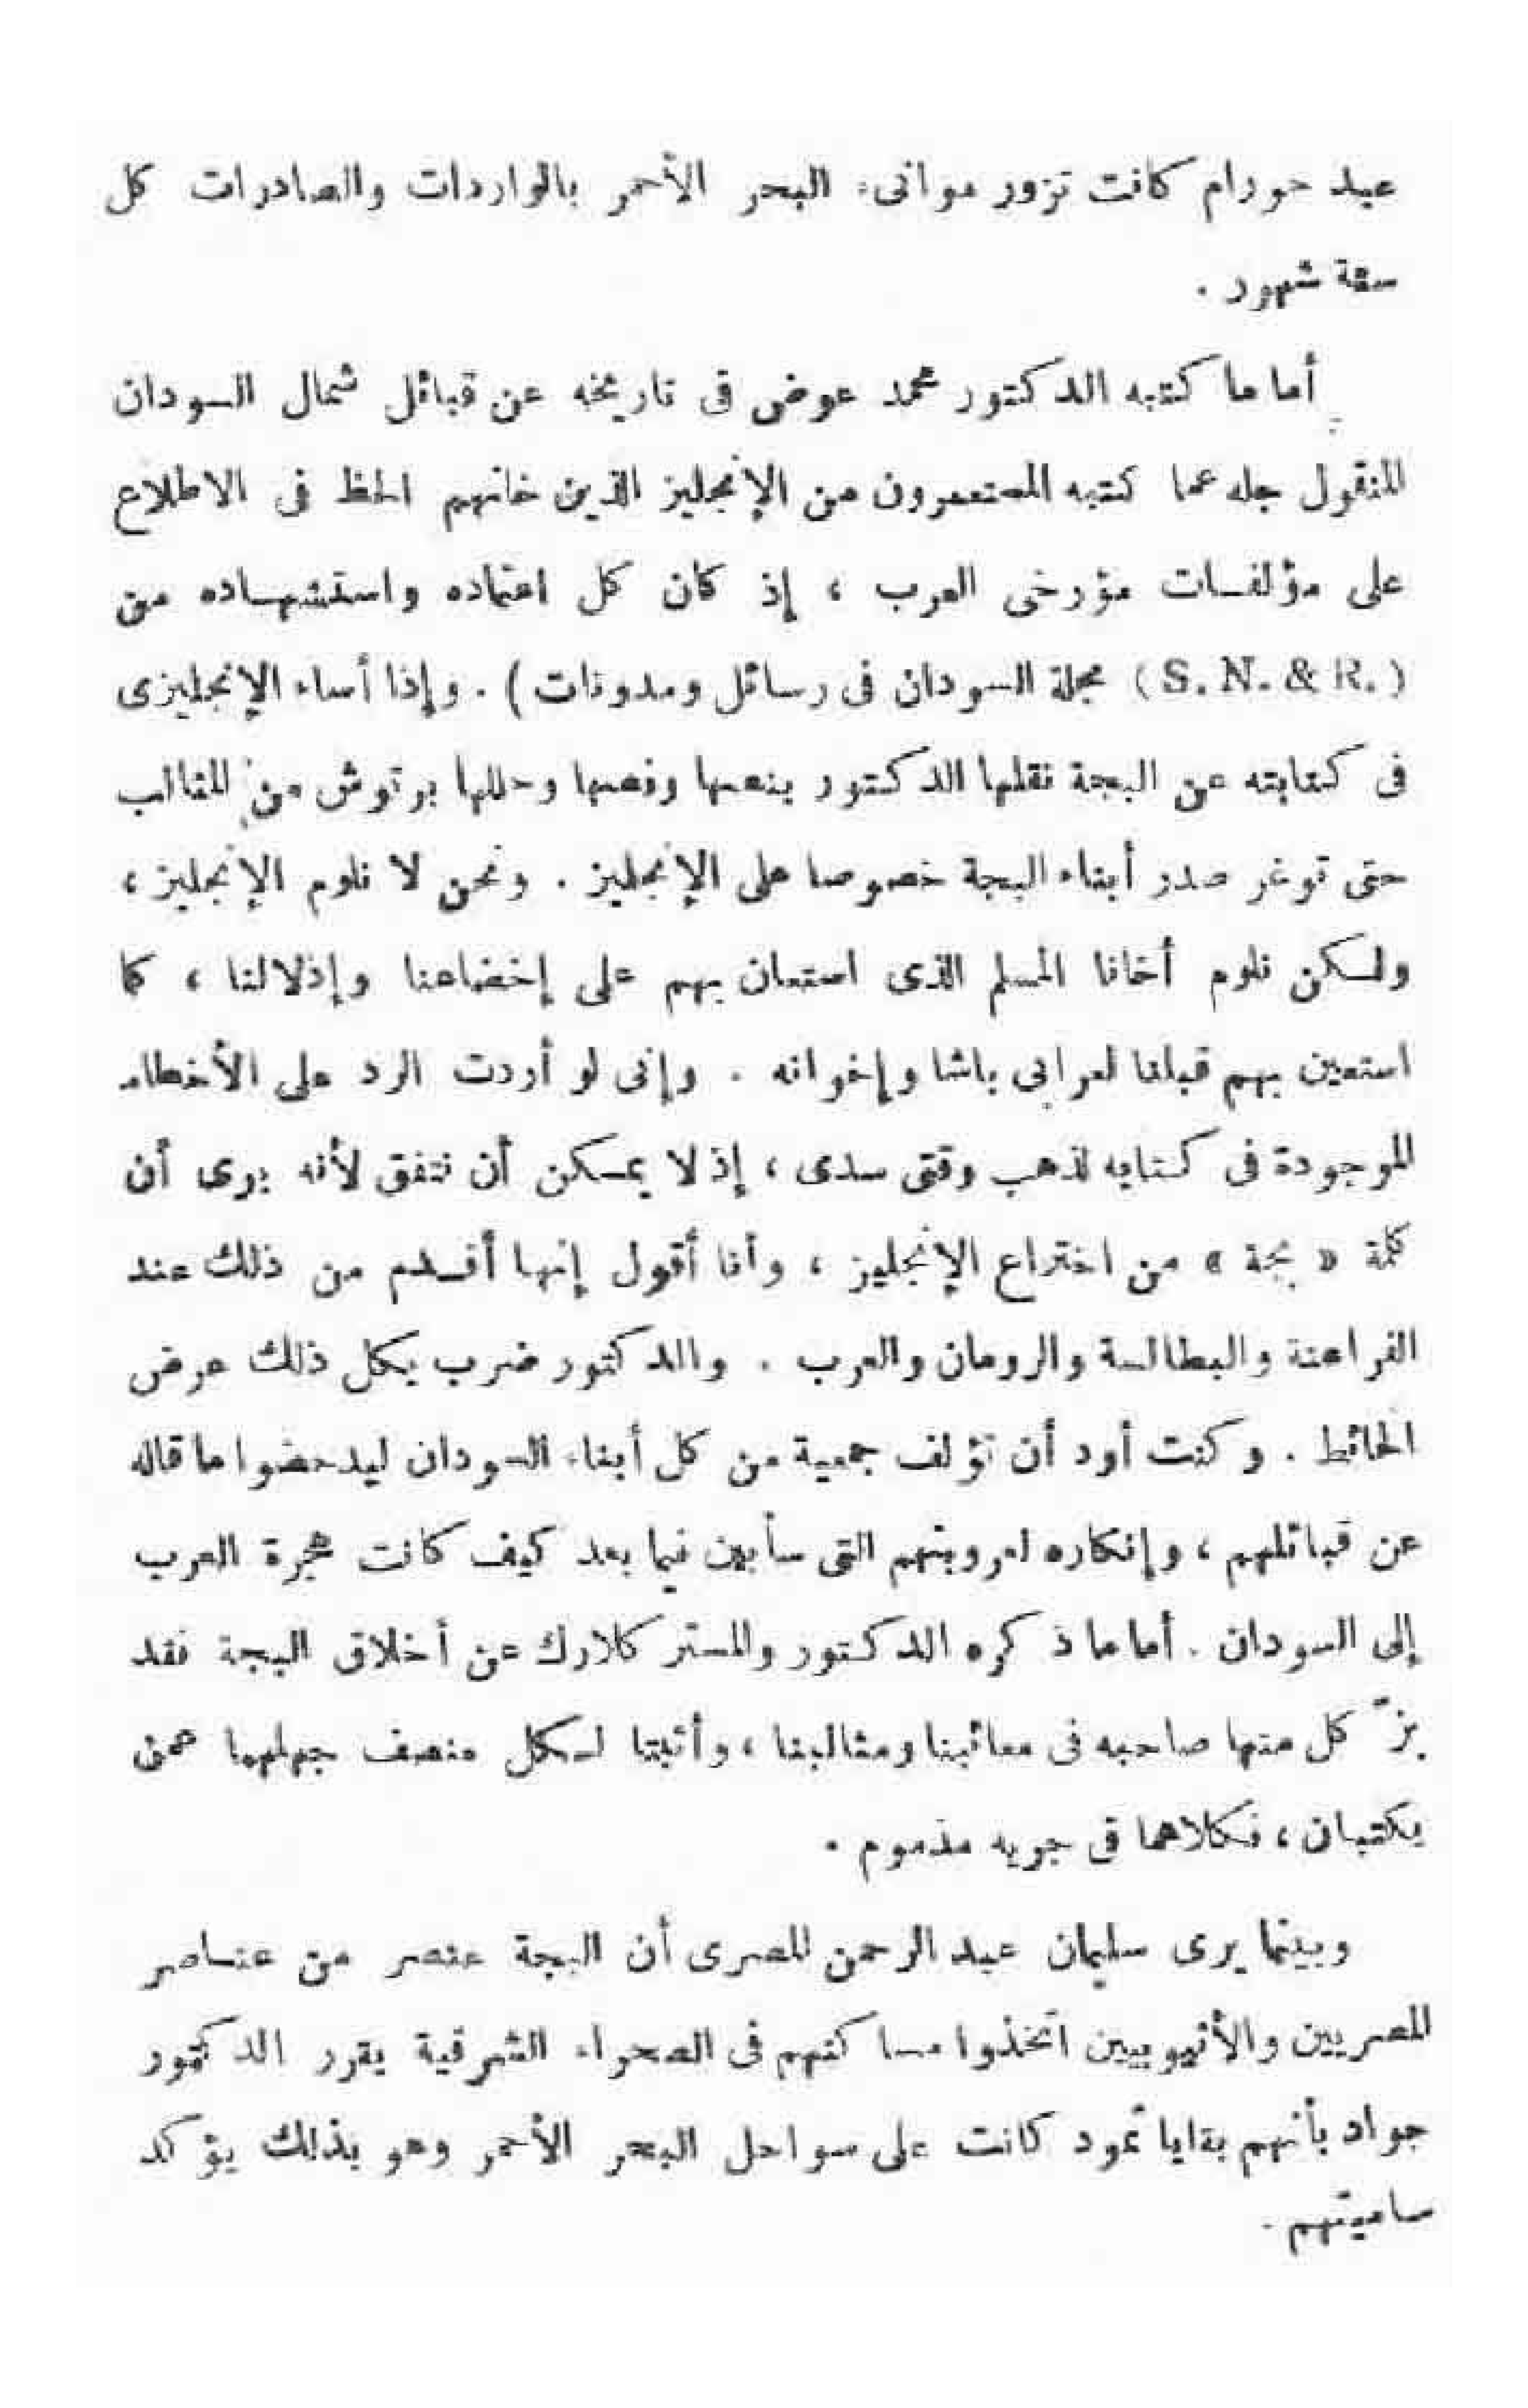 عبد حورام كانت تزور موانىء البحر الأحمر بالواردات والصادرات كل
ستة شهور .
أما ما كتبه الدكتور محمد عوض فى تاريخه عن قبائل شمال السودان
المنقول جله عما كتبه المستعمرون من الإنجليز الذين خانهم الحظ فى الاطلاع
على مؤلفات مؤرخى العرب ، إذ كان كل اعتماده واستشهاده من
( S. N. & R. ) مجلة السودان فى رسائل ومدونات ) . وإذا أساء الإنجليزى
فى كتابته عن البجة نقلها الدكتور بنصها وفصها وحللها برتوش من المثالب
حتى توغر صدر أبناء البجة خصوصا على الإنجليز . ونحن لا نلوم الإنجليز ،
ولكن نلوم أخانا المسلم الذى استعان بهم على إخضاعنا وإذلالنا ، كما
استعين بهم قبلنا لعرابى باشا وإخوانه . وإنى لو أردت الرد على الأخطاء
الموجودة فى كتابه لذهب وقتى سدى ، إذ لا يمكن أن نتفق لأنه يرى أن
كلمة « بجة » من اختراع الإنجليز ، وأنا أقول إنها أقدم من ذلك عند
الفراعنة والبطالسة والرومان والعرب . والدكتور ضرب بكل ذلك عرض
الحائط . وكنت أود أن تؤلف جمعية من كل أبناء السودان ليدحضوا ما قاله
عن قبائلهم ، وإنكاره لعروبتهم التى سأبين فيما بعد كيف كانت هجرة العرب
إلى السودان . أما ما ذكره الدكتور والمستر كلارك عن أخلاق البجة فقد
بزّ كل منها صاحبه فى معائبنا ومثالبنا ، وأثبتا لكل منصف جهلهما عمن
يكتبان ، فكلاهما فى جريه مذموم .
وبينما يرى سليمان عبد الرحمن المصرى أن البجة عنصر من عناصر
المصريين والأثيوبيين اتخذوا مساكنهم فى الصحراء الشرقية يقرر الدكتور
جواد بأنهم بقايا ثمود كانت على سواحل البحر الأحمر وهو بذلك يؤكد
ساميتهم .